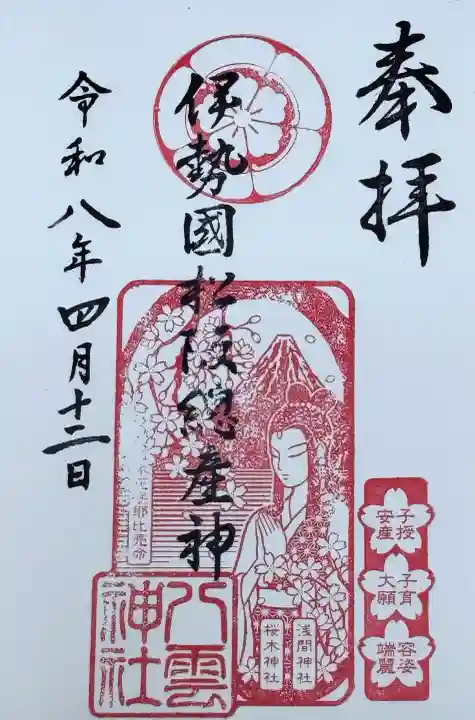 奉拝
伊勢國松阪總産神
令和八年四月十二日
木花咲耶比売命
浅間神社
桜木神社
八雲神社
子授
安産
子育
大願
容姿
端麗